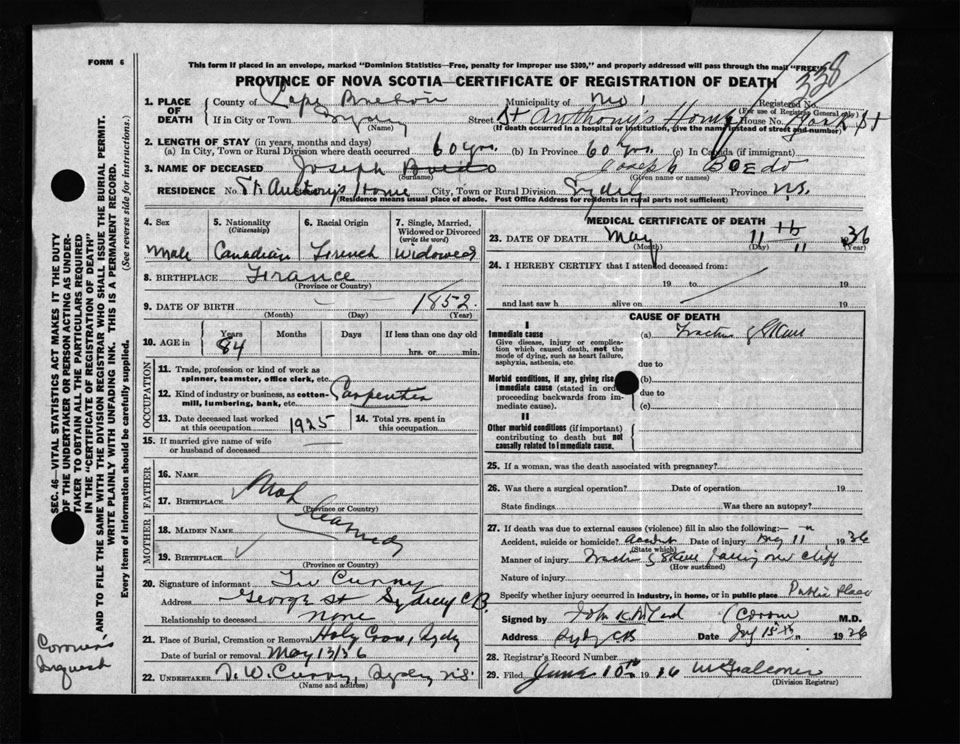 FORM 6
This form if placed in an envelope, marked "Dominion Statistics—Free, penalty for improper use $300," and properly addressed will pass through the mail "FREE"
338
PROVINCE OF NOVA SCOTIA—CERTIFICATE OF REGISTRATION OF DEATH
1. PLACE OF DEATH
County of Cape Breton Municipality of Registered No.
(For use of Registrar General only)
If in City or Town Sydney Street St Anthony's Home House No. York St
(Name) (If death occurred in a hospital or institution, give the name instead of street and number)
2. LENGTH OF STAY (in years, months and days)
(a) In City, Town or Rural Division where death occurred 60 yrs. (b) In Province 60 Yrs. (c) In Canada (if immigrant)
3. NAME OF DECEASED Joseph Joseph BOEDO
(Surname) (Given name or names)
RESIDENCE No. St Anthony's Home City, Town or Rural Division Sydney Province N.S.
(Residence means usual place of abode. Post Office Address for residents in rural parts not sufficient)
4. Sex 5. Nationality (Citizenship) 6. Racial Origin 7. Single, Married, Widowed or Divorced (write the word)
Male Canadian French Widowed
8. BIRTHPLACE France
(Province or Country)
9. DATE OF BIRTH 1852.
(Month) (Day) (Year)
10. AGE in Years Months Days If less than one day old
84 hrs. or min.
OCCUPATION
11. Trade, profession or kind of work as spinner, teamster, office clerk, etc.
12. Kind of industry or business, as cotton-mill, lumbering, bank, etc. Carpenter
13. Date deceased last worked at this occupation 1925 14. Total yrs. spent in this occupation
15. If married give name of wife or husband of deceased
FATHER
16. NAME
17. BIRTHPLACE
(Province or Country)
MOTHER
18. MAIDEN NAME
19. BIRTHPLACE
(Province or Country)
20. Signature of informant Curry
Address George St Sydney C.B.
Relationship to deceased none
21. Place of Burial, Cremation or Removal Holy Cross, Sydney
Date of burial or removal May 13/36
22. UNDERTAKER Curry, Sydney N.S.
(Name and address)
MEDICAL CERTIFICATE OF DEATH
23. DATE OF DEATH May 11 36
(Month) (Day) (Year)
24. I HEREBY CERTIFY that I attended deceased from:
19 to 19
and last saw h alive on 19
CAUSE OF DEATH
I
Immediate cause
Give disease, injury or complication which caused death, not the mode of dying, such as heart failure, asphyxia, asthenia, etc.
(a) Fracture of Skull
due to
Morbid conditions, if any, giving rise to immediate cause (stated in order proceeding backwards from immediate cause).
(b)
due to
(c)
II
Other morbid conditions (if important) contributing to death but not causally related to immediate cause.
25. If a woman, was the death associated with pregnancy?
26. Was there a surgical operation? Date of operation 19
State findings Was there an autopsy?
27. If death was due to external causes (violence) fill in also the following:
Accident, suicide or homicide? accident Date of injury May 11 1936
(State which)
Manner of injury Fracture of Skull falling over cliff
(How sustained)
Nature of injury
Specify whether injury occurred in industry, in home, or in public place Public Place
Signed by John (Coroner M.D.
Address Sydney CB Date 15 1936
28. Registrar's Record Number
29. Filed June 10th 19
(Division Registrar)
SEC. 46—VITAL STATISTICS ACT MAKES IT THE DUTY
OF THE UNDERTAKER OR PERSON ACTING AS UNDER-
TAKER TO OBTAIN ALL THE PARTICULARS REQUIRED
IN THE "CERTIFICATE OF REGISTRATION OF DEATH"
AND TO FILE THE SAME WITH THE DIVISION REGISTRAR WHO SHALL ISSUE THE BURIAL PERMIT.
WRITE PLAINLY WITH UNFADING INK. THIS IS A PERMANENT RECORD.
Every item of information should be carefully supplied. (See reverse side for instructions.)
Coroners
Inquest